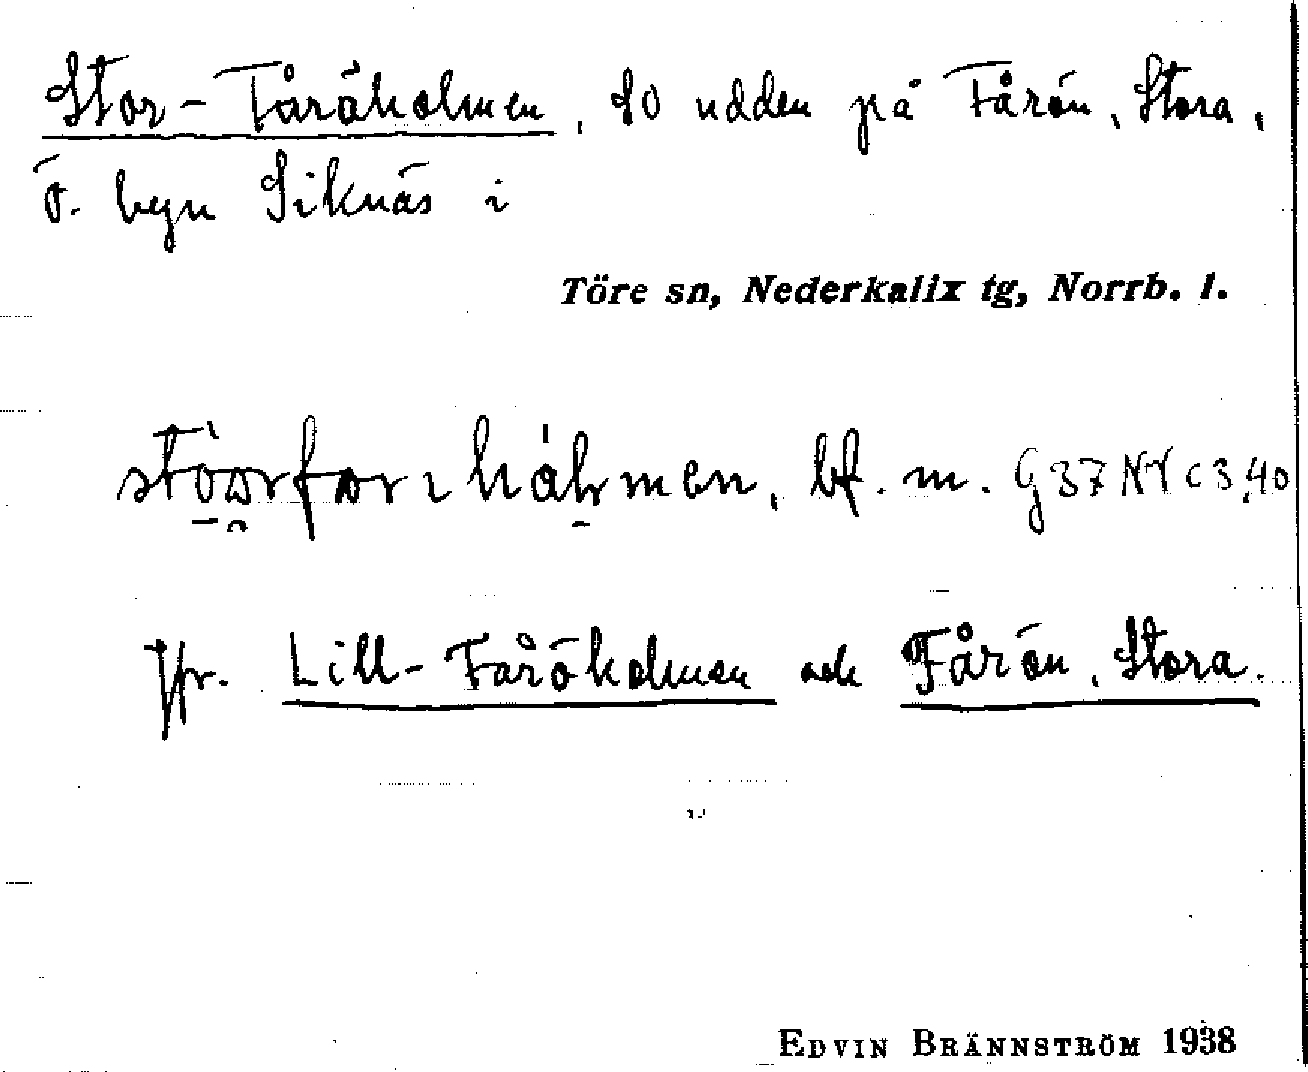 Stor-Fåröholmen, SO udden på Fårön, Stora,
ö. byn Siknäs i
Töre sn, Nederkalix tg, Norrb. l.
bf. m. G37 NV c3,40
Jfr. Lill-Fåröholmen och Fårön, Stora.
EDVIN BRÄNNSTRÖM 1938